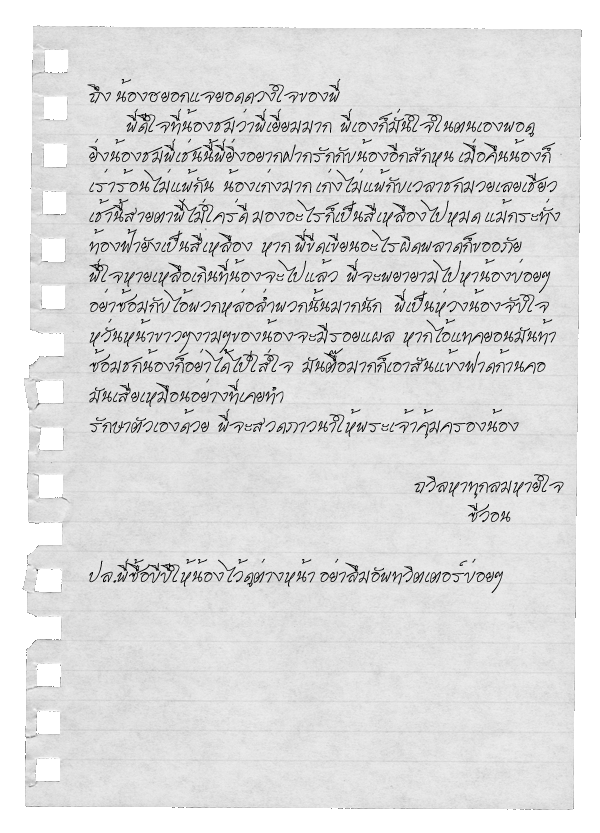 ถึง น้องชยอกแจยอดดวงใจของพี่
พี่ดีใจที่น้องชมว่าพี่เยี่ยมมาก พี่เองก็มั่นใจในตนเองพอดู
ยิ่งน้องชมพี่เช่นนี้พี่ยิ่งอยากฝากรักกับน้องอีกสักหน เมื่อคืนน้องก็
เร่าร้อนไม่แพ้กัน น้องเก่งมาก เก่งไม่แพ้กับเวลาชกมวยเลยเชียว
เช้านี้สายตาพี่ไม่ใคร่ดี มองอะไรก็เป็นสีเหลืองไปหมด แม้กระทั่ง
ท้องฟ้ายังเป็นสีเหลือง หาก พี่ขีดเขียนอะไรผิดพลาดก็ขออภัย
พี่ใจหายเหลือเกินที่น้องจะไปแล้ว พี่จะพยายามไปหาน้องบ่อยๆ
อย่าซ้อมกับไอ้พวกหล่อล่ำพวกนั้นมากนัก พี่เป็นห่วงน้องจับใจ
หวั่นหน้าขาวๆงามๆของน้องจะมีรอยแผล หากไอ้แทคยอนมันท้า
ซ้อมชกน้องก็อย่าได้ไปใส่ใจ มันตื๊อมากก็เอาสันแข้งฟาดก้านคอ
มันเสียเหมือนอย่างที่เคยทำ
รักษาตัวเองด้วย พี่จะสวดภาวนาให้พระเจ้าคุ้มครองน้อง
ถวิลหาทุกลมหายใจ
ซีวอน
ปล.พี่ซื้อบีบีให้น้องไว้ดูต่างหน้า อย่าลืมอัพทวิตเตอร์บ่อยๆ